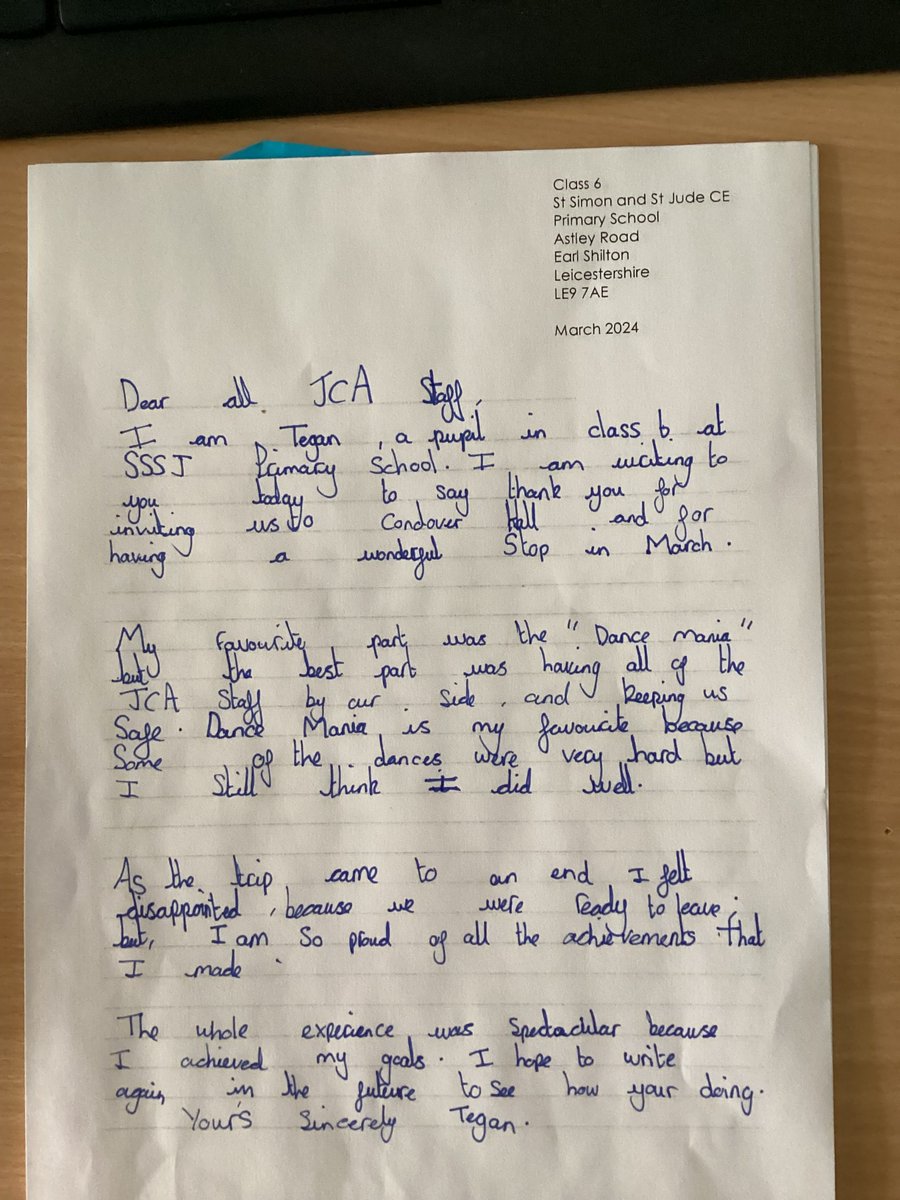 Class 6
St Simon and St Jude CE
Primary School
Astley Road
Earl Shilton
Leicestershire
LE9 7AE
March 2024
Dear all JCA Staff,
I am Tegan, a pupil in class 6 at
SSSJ Primary School. I am writing to
you today to say thank you for
inviting us to Condover Hall and for
having a wonderful Stop in March.
My favourite part was the "Dance mania"
but the best part was having all of the
JCA Staff by our side, and keeping us
Safe. Dance Mania is my favourite because
Some of the dances were very hard but
I Still think I did well.
As the trip came to an end I felt
disappointed, because we were ready to leave;
but, I am So proud of all the achievements that
I made.
The whole experience was Spectacular because
I achieved my goals. I hope to write
again in the future to see how your doing.
Yours Sincerely Tegan.